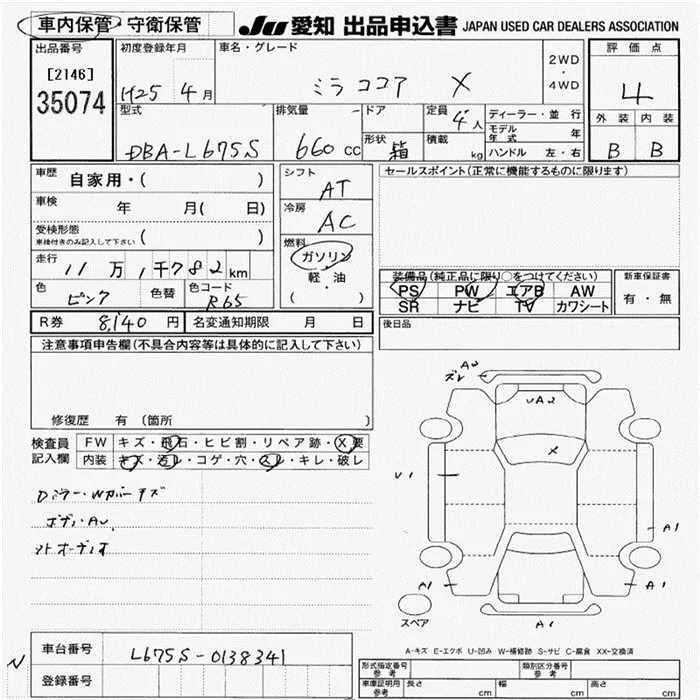 車内保管・守衛保管
JU 愛知 出品申込書 JAPAN USED CAR DEALERS ASSOCIATION
出品番号
[2146]
35074
初度登録年月
H25 年 4 月
車名・グレード
ミラココア X
2WD
・
4WD
評価点
4
外装 内装
B B
型式
DBA-L675S
排気量
660 cc
ドア
形状
箱
定員
4人
積載
kg
ディーラー・並行
モデル年式 年
ハンドル 左・右
車歴 自家用・( )
車検 年 月( 日)
受検形態
車検付きのみ記入して下さい ( )
走行 11万1千782 km
色 ピンク 色替 色コード R65
シフト AT
冷房 AC
燃料
ガソリン
軽・油
( )
セールスポイント(正常に機能するものに限ります)
装備品(純正品に限り○をつけてください)
PS PW エアB AW
SR ナビ TV カワシート
新車保証書
有・無
後日品
R券 8,140 円 名変通知期限 月 日
注意事項申告欄(不具合内容等は具体的に記入して下さい)
修復歴 有 (箇所 )
検査員記入欄
FW キズ・飛石・ヒビ割・リペア跡・X要
内装 キズ・汚レ・コゲ・穴・スレ・キレ・破レ
Dミラー・Wカバーキズ
ボディ・AU
ズレ
AU
UA2
X
U1
A1
A1
A1
A1
スペア
A-キズ E-エクボ U-凹み W-補修跡 S-サビ C-腐食 XX-交換済
車台番号 L675S-0138341
登録番号
N
型式指定番号
参考
類別区分番号
参考
車庫証明用
参考
長さ cm 幅 cm 高さ cm